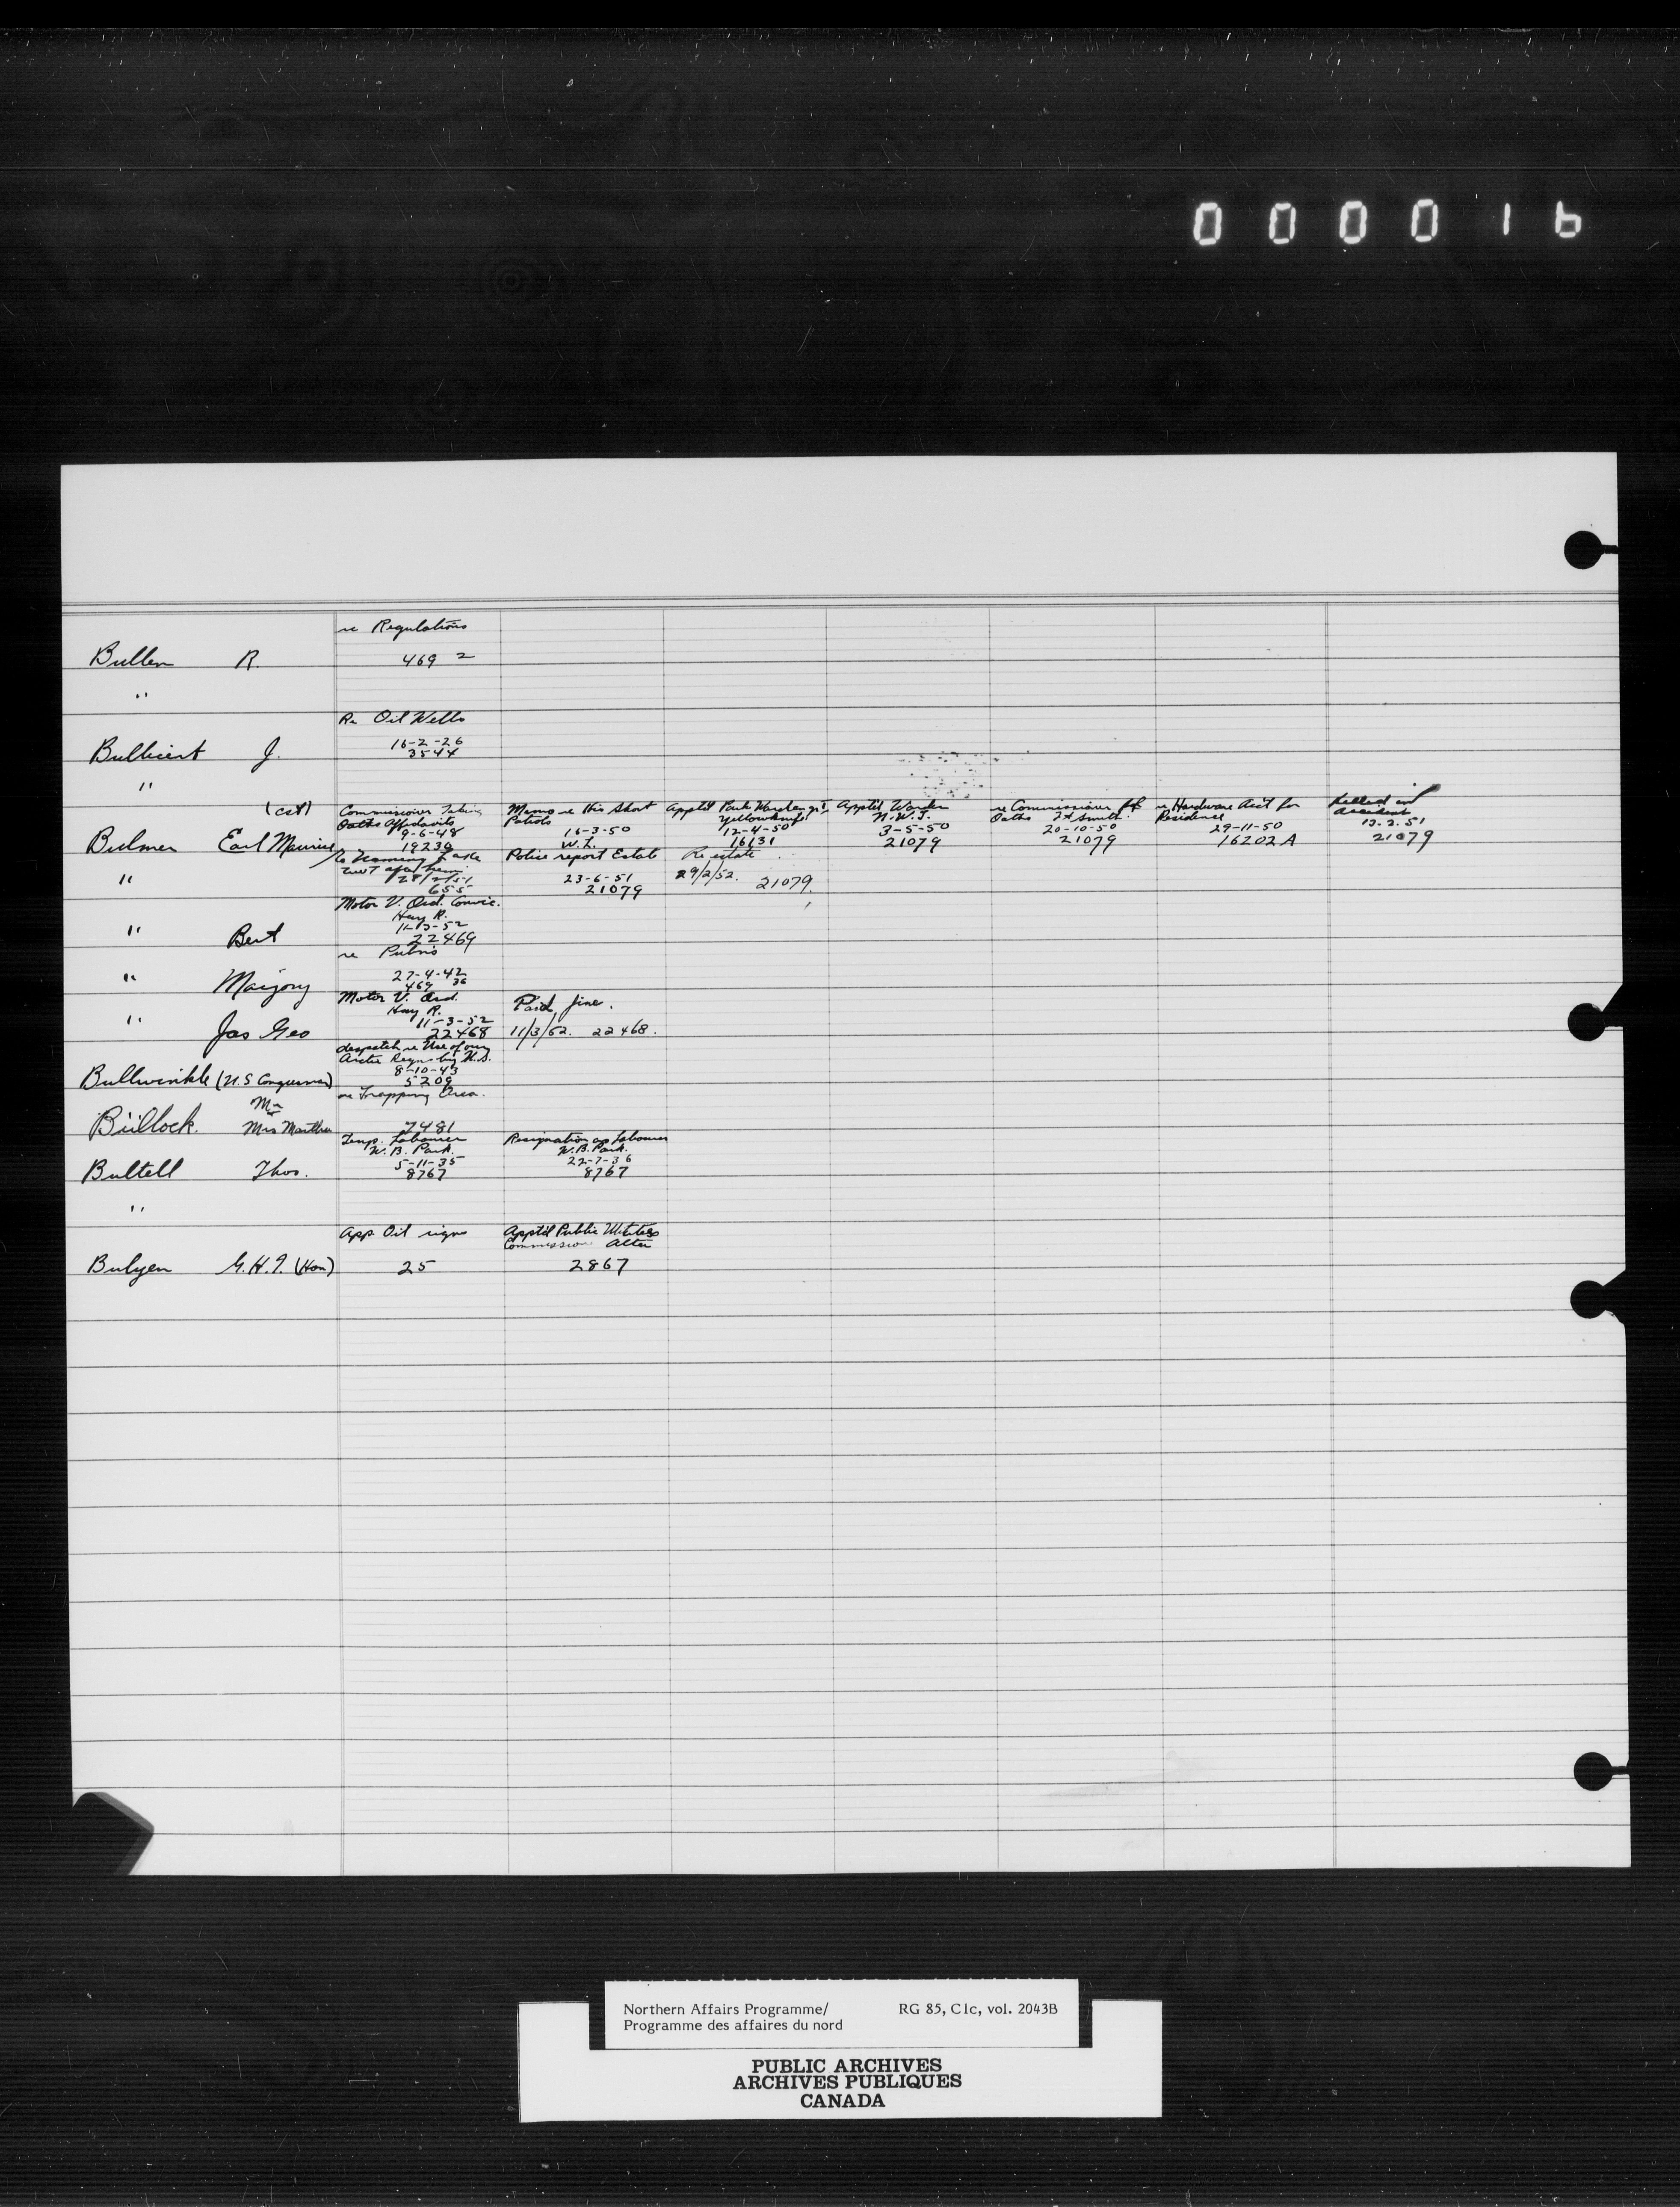 000016
re Regulations
Bullen R. 469 2
"
Re Oil Wells
16-2-26
J. 3544
"
(cst) Commissioner Taking Memo re His Short Apptd Park Warden Apptd Warden re Commissioner for re Hardware Acct for Killed in
Oaths Affidavits Patrols Yellowknife N.W.T. Oaths Ft Smith Residence Accident
9-6-48 16-3-50 12-4-50 3-5-50 20-10-50 29-11-50 13-2-51
Bulmer Earl Maurice 19230 W.L. 16131 21079 21079 16202A 21079
Re Naming Lake Police report Estate Re estate
NWT after him
" 28/2/51 23-6-51 29/2/52. 21079.
655 21079
Motor V. Ord. Convic.
Hay R.
11-3-52
" Bert 22469
re Pubns
27-4-42
" Marjory 469 36
Motor V. Ord. Paid fine.
Hay R.
11-3-52
" Jas Geo 22468 11/3/52. 22468.
despatch re Use of our
Arctic Regns by U.S.
8-10-43
Bullwinkle (U.S Congressman) 5209
re Trapping Area.
Mr
or
Bullock. Mrs Matthew 7481
Temp. Labourer Resignation as Labourer
W.B. Park. W.B. Park.
5-11-35 22-7-36
Bultell Thos. 8767 8767
"
App. Oil signs Apptd Public Utilities
Commission Alta
Bulyea G.H.V. (Hon) 25 2867
Northern Affairs Programme/ RG 85, C1c, vol. 2043B
Programme des affaires du nord
PUBLIC ARCHIVES
ARCHIVES PUBLIQUES
CANADA